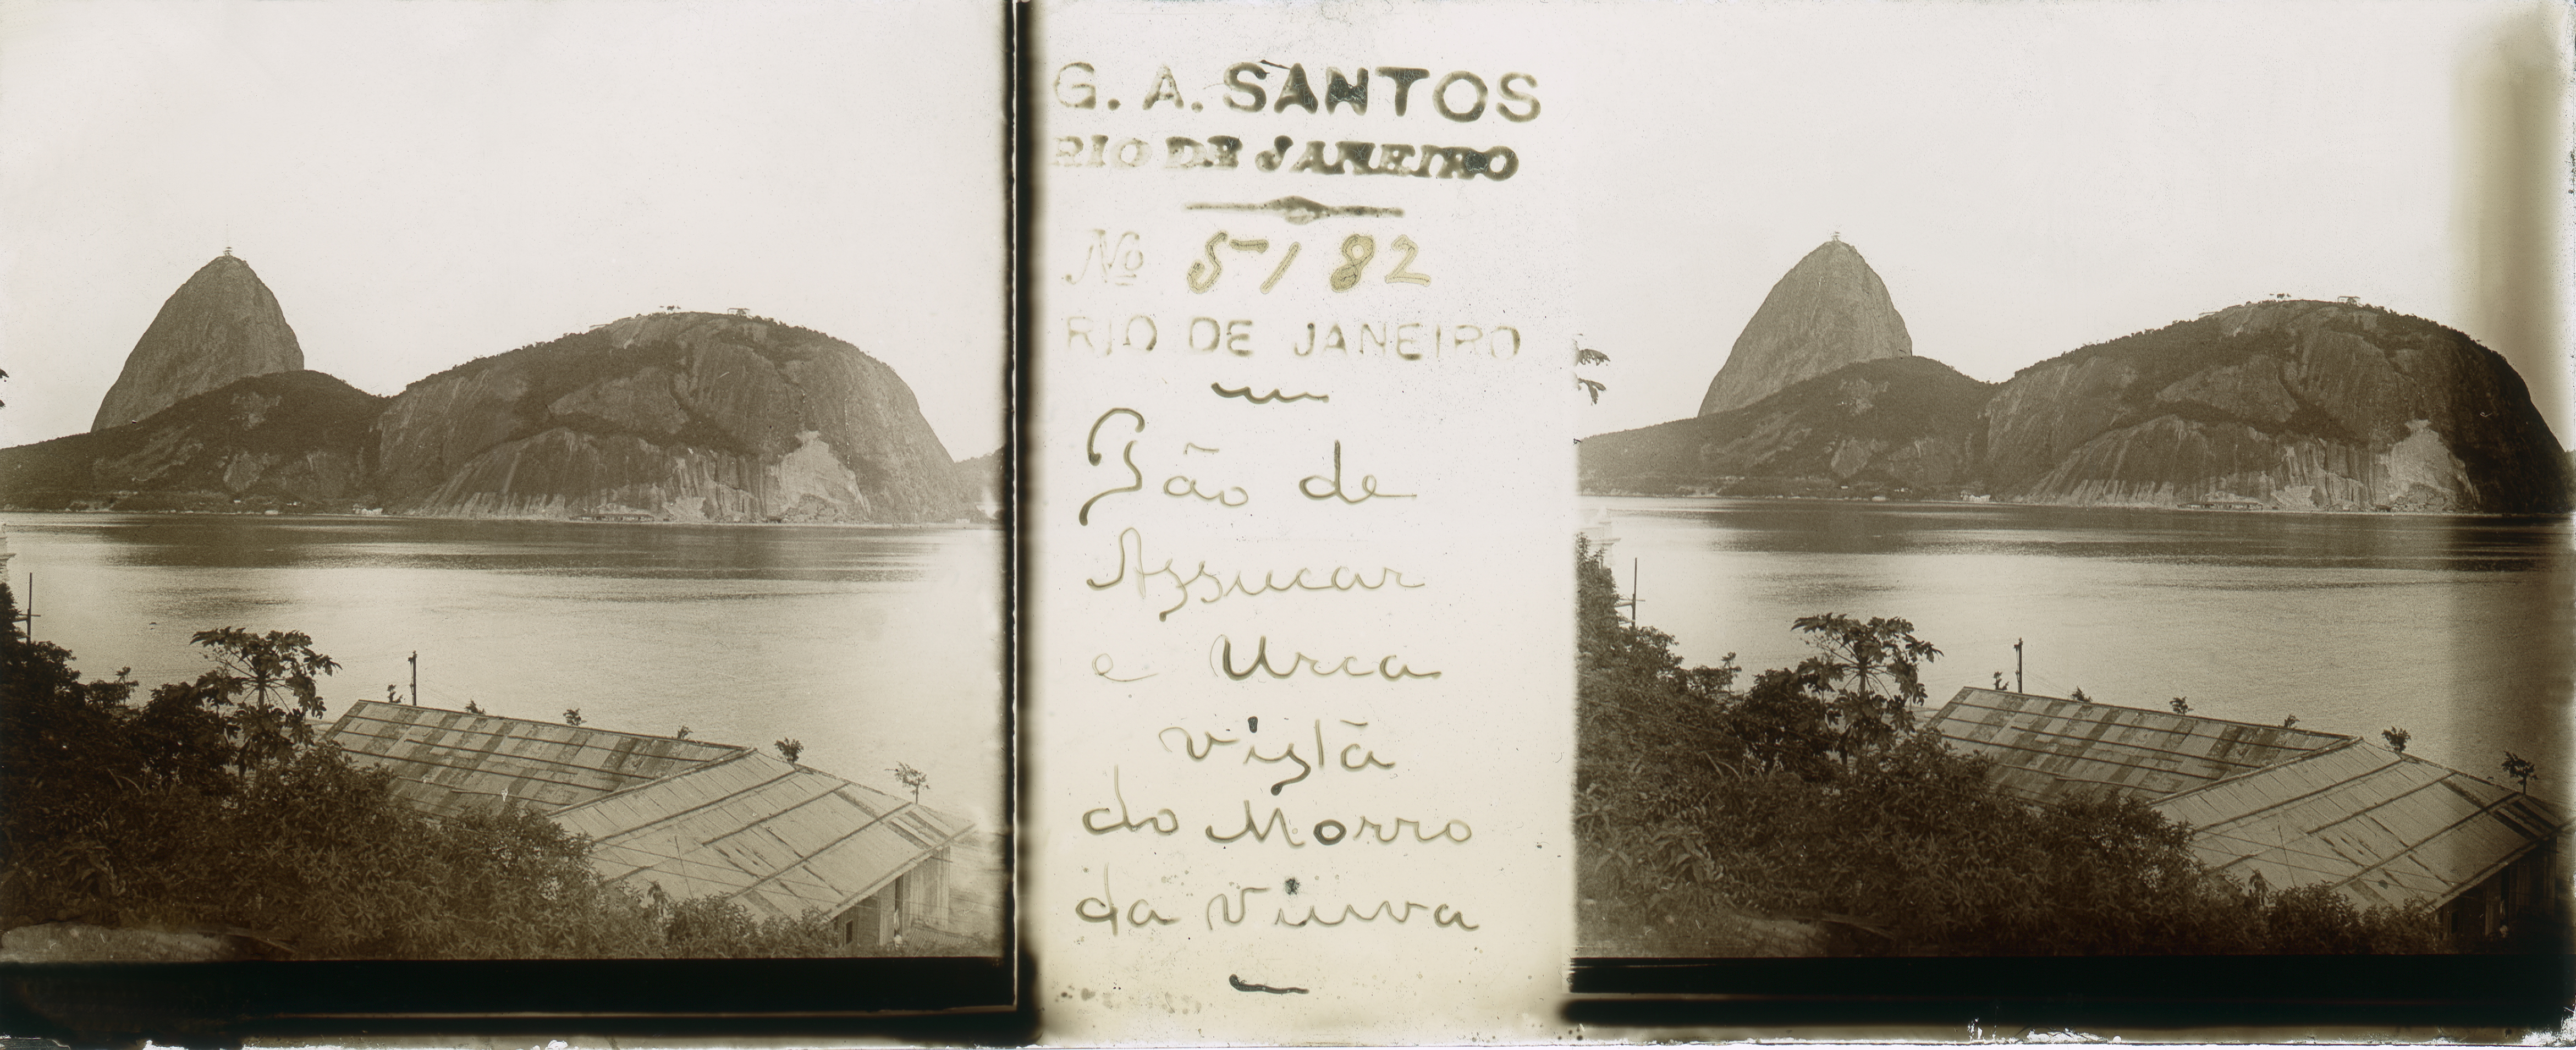 G. A. SANTOS
RIO DE JANEIRO
Nº 5182
RIO DE JANEIRO
Pão de
Assucar
e Urca
vista
do Morro
da Viuva